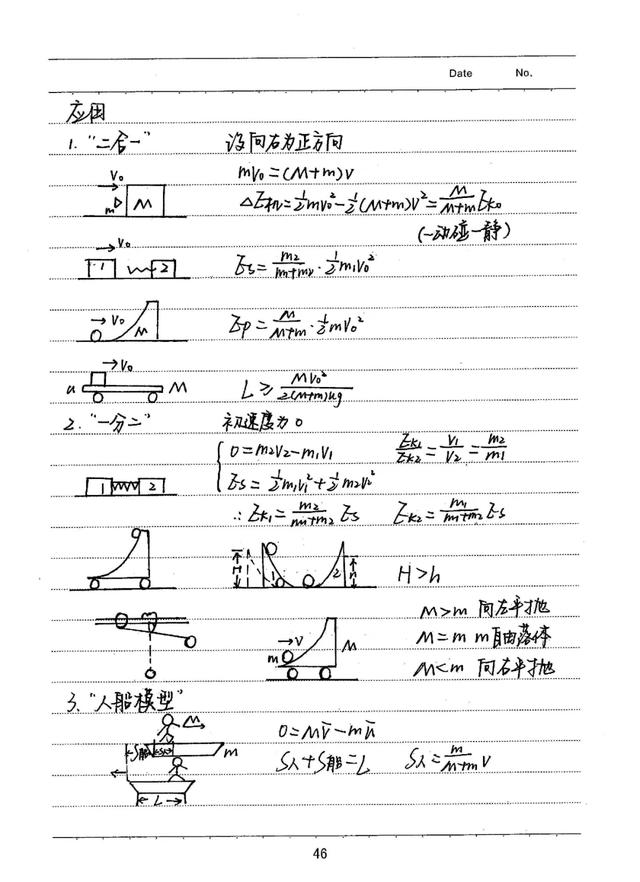 Date No.
应用
1. "二合一" 设向右为正方向
V₀ m M mV₀=(M+m)V
△E机=½mV₀²-½(M+m)V²=M/(M+m)Eₖ₀
(一动碰一静)
V₀ 1 2 Eₛ=m₂/(m₁+m₂)·½m₁V₀²
V₀ M Eₚ=M/(M+m)·½mV₀²
V₀ u M L≥MV₀²/2(M+m)ug
2. "一分二" 初速度为0
0=m₂V₂-m₁V₁ Eₖ₁/Eₖ₂=V₁/V₂=m₂/m₁
1 2 Eₛ=½m₁V₁²+½m₂V₂²
∴Eₖ₁=m₂/(m₁+m₂)Eₛ Eₖ₂=m₁/(m₁+m₂)Eₛ
H 1 2 h H>h
M>m 向左平抛
V m M M=m m自由落体
M<m 向右平抛
3. "人船模型"
M m S船 S人 0=Mv̄-mū
S人+S船=L S人=m/(M+m)V
L
46